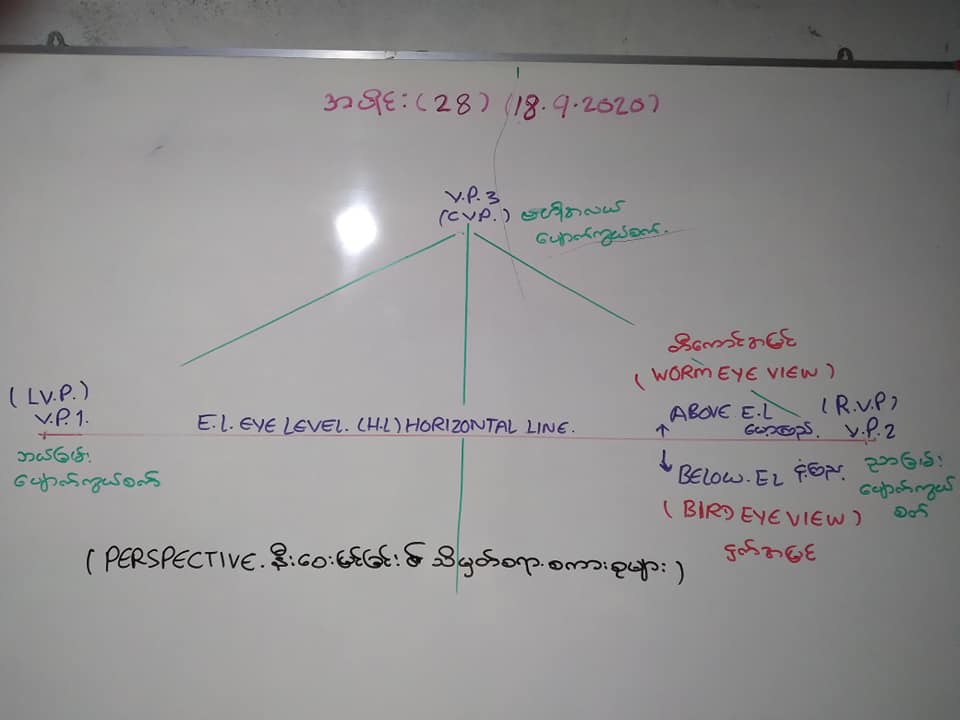 အပိုင်း (28) (18.9.2020)
V.P. 3
(C V.P.) ဗဟိုအလယ်
ပျောက်ကွယ်စက်
တီကောင်အမြင်
(WORM EYE VIEW)
(L V.P.)
V.P. 1.
E.L. EYE LEVEL. (H.L) HORIZONTAL LINE.
ABOVE E.L
(R.V.P)
V.P. 2
ဘယ်ခြမ်း
ပျောက်ကွယ်စက်
BELOW. E L
ညာခြမ်း
ပျောက်ကွယ်
စက်
(BIRD EYE VIEW)
ငှက်အမြင်
(PERSPECTIVE. နီးဝေးမြင်ခြင်း၌ သိမှတ်စရာ စကားစုများ)